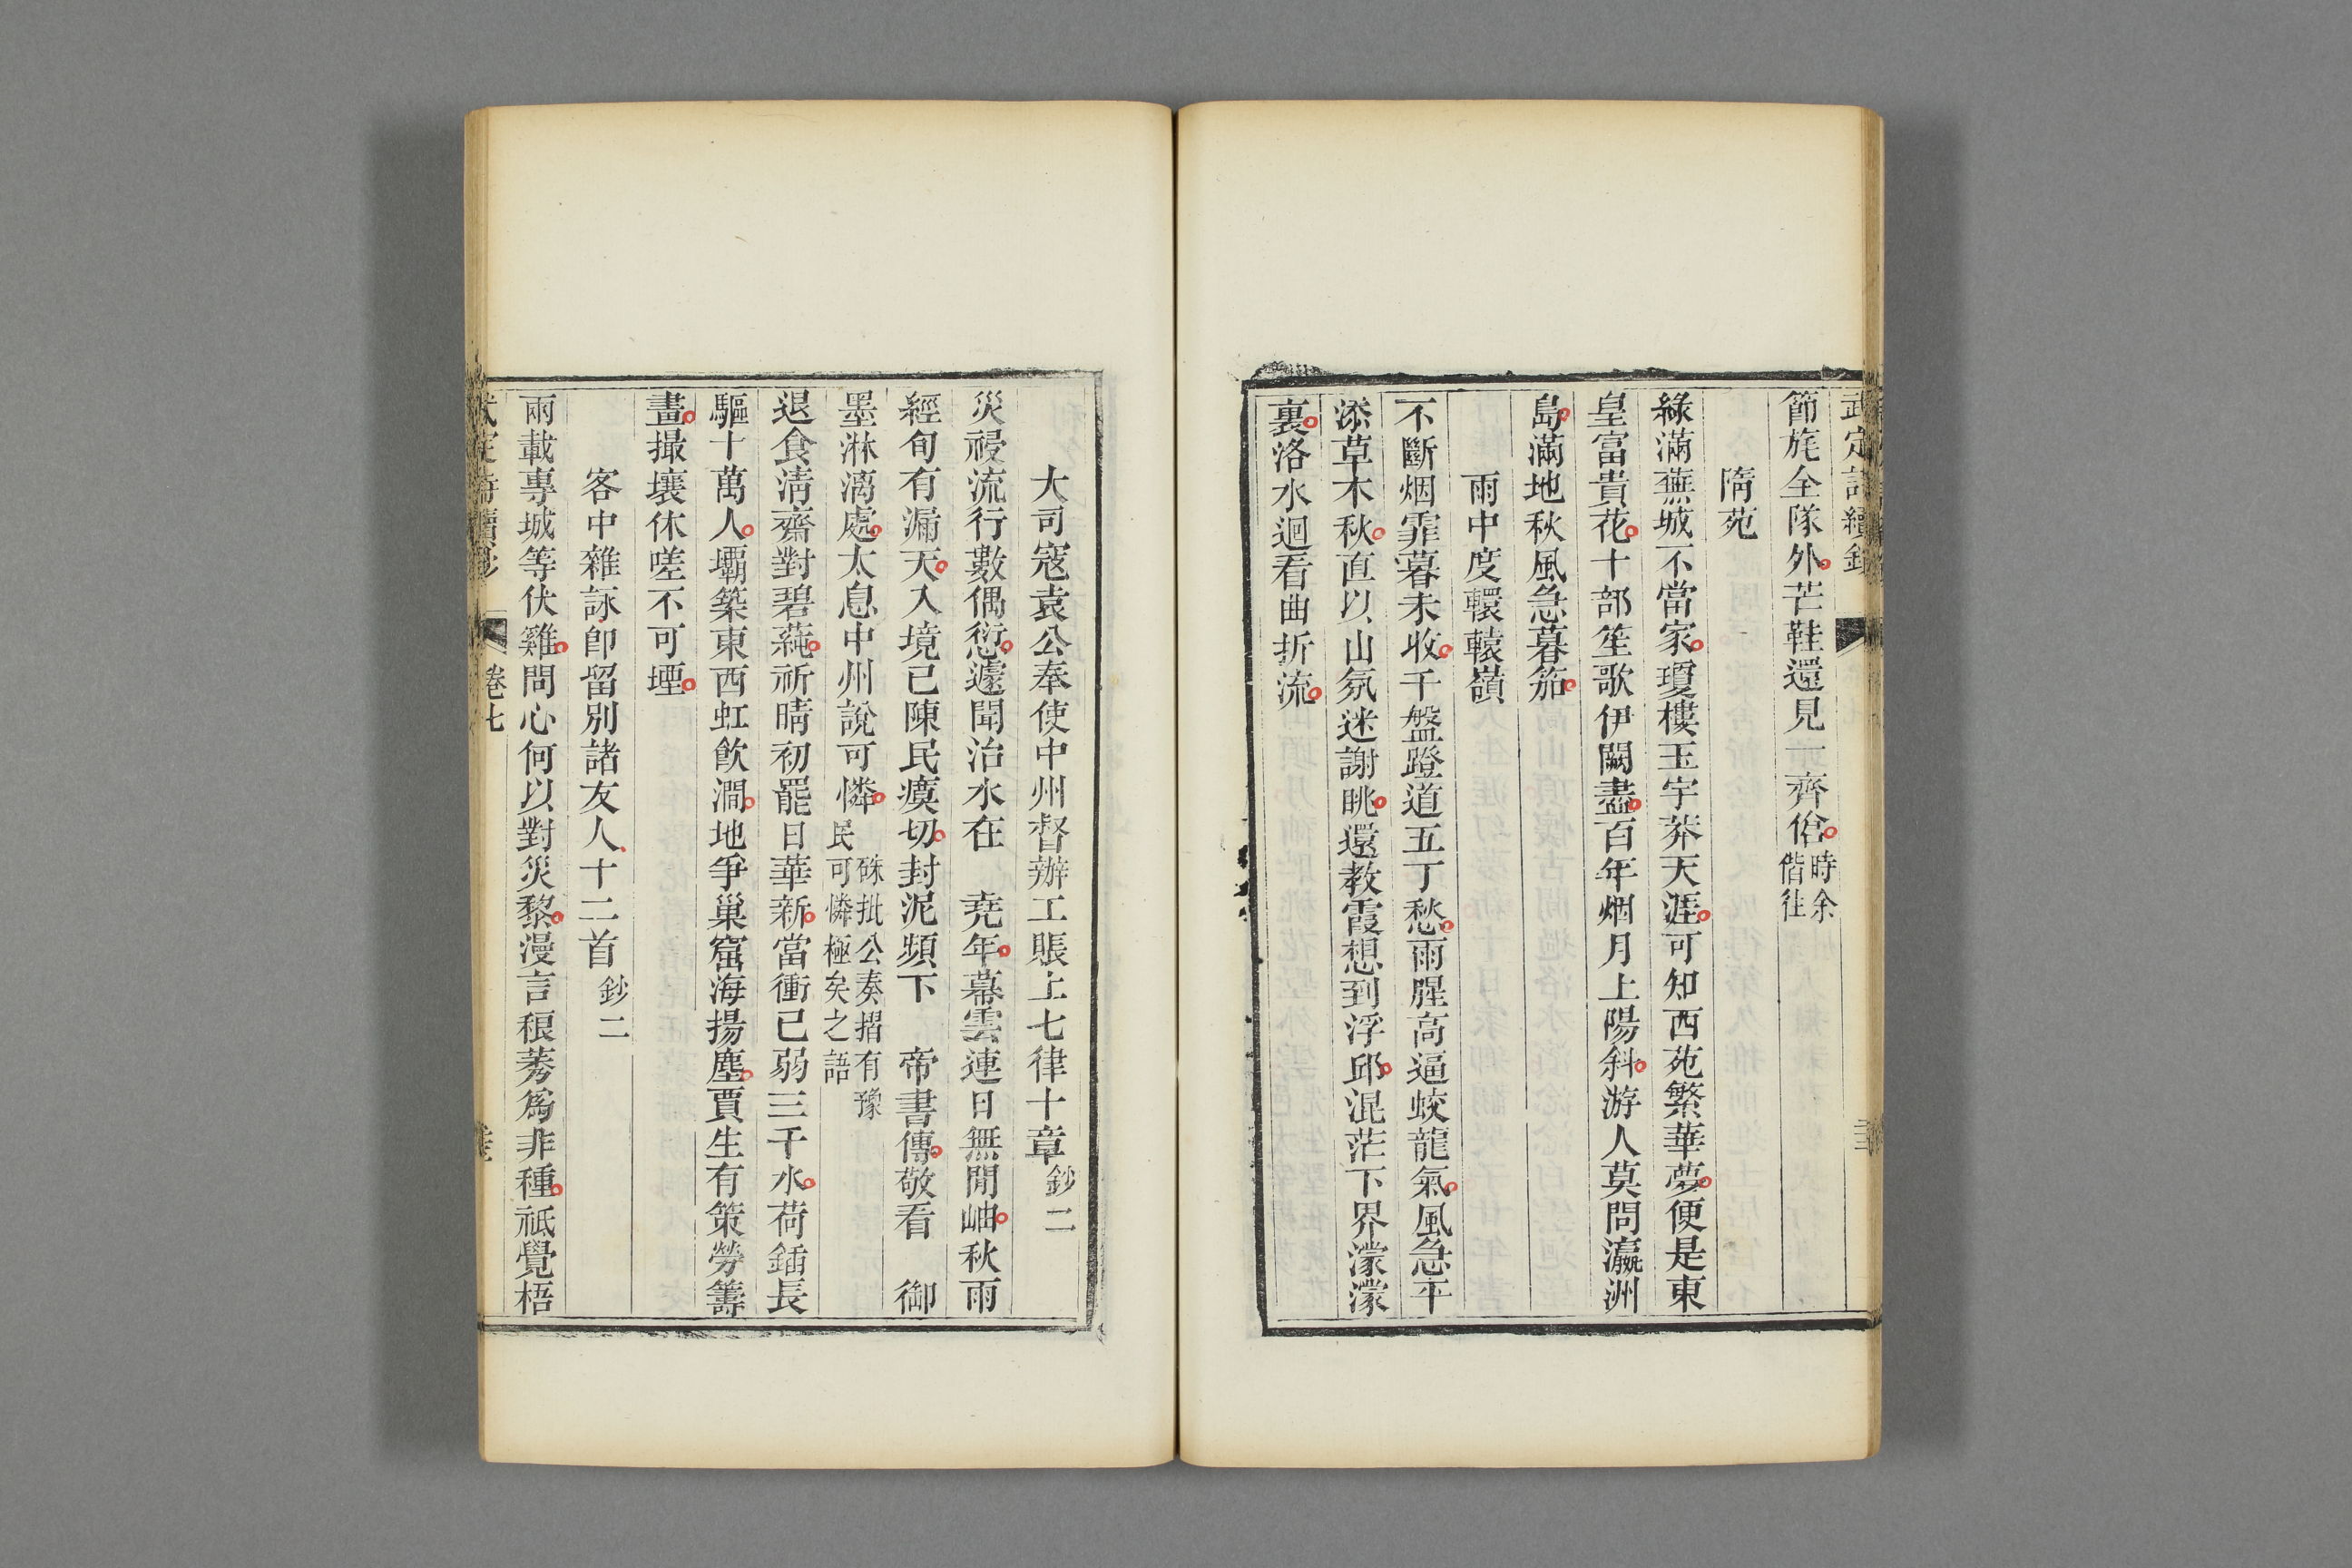 武定詩續鈔
節旄全隊外芒鞋還見一齊偺時余偕往
隋苑
綠滿蕪城不當家瓊樓玉宇莽天涯可知西苑繁華夢便是東
皇富貴花十部笙歌伊闕盡百年烟月上陽斜游人莫問瀛洲
島滿地秋風急暮笳
雨中度轘轅嶺
不斷烟霏暮未收千盤蹬道五丁愁雨腥高逼蛟龍氣風急平
添草木秋直以山氛迷謝眺還教霞想到浮邱混茫下界濛濛
裏洛水迴看曲折流
大司寇袁公奉使中州督辦工賬上七律十章鈔二
災祲流行數偶愆遽聞治水在　堯年幕雲連日無閒岫秋雨
經旬有漏天入境已陳民瘼切封泥頻下　帝書傳敬看　御
墨淋漓處太息中州說可憐硃批公奏摺有豫民可憐極矣之語
退食清齋對碧蓴祈晴初罷日華新當衝已弱三千水荷鍤長
驅十萬人壩築東西虹飲澗地爭巢窟海揚塵賈生有策勞籌
畫撮壤休嗟不可堙
客中雜詠卽留別諸友人十二首鈔二
兩載專城等伏雞問心何以對災黎漫言稂莠爲非種祗覺梧
卷七